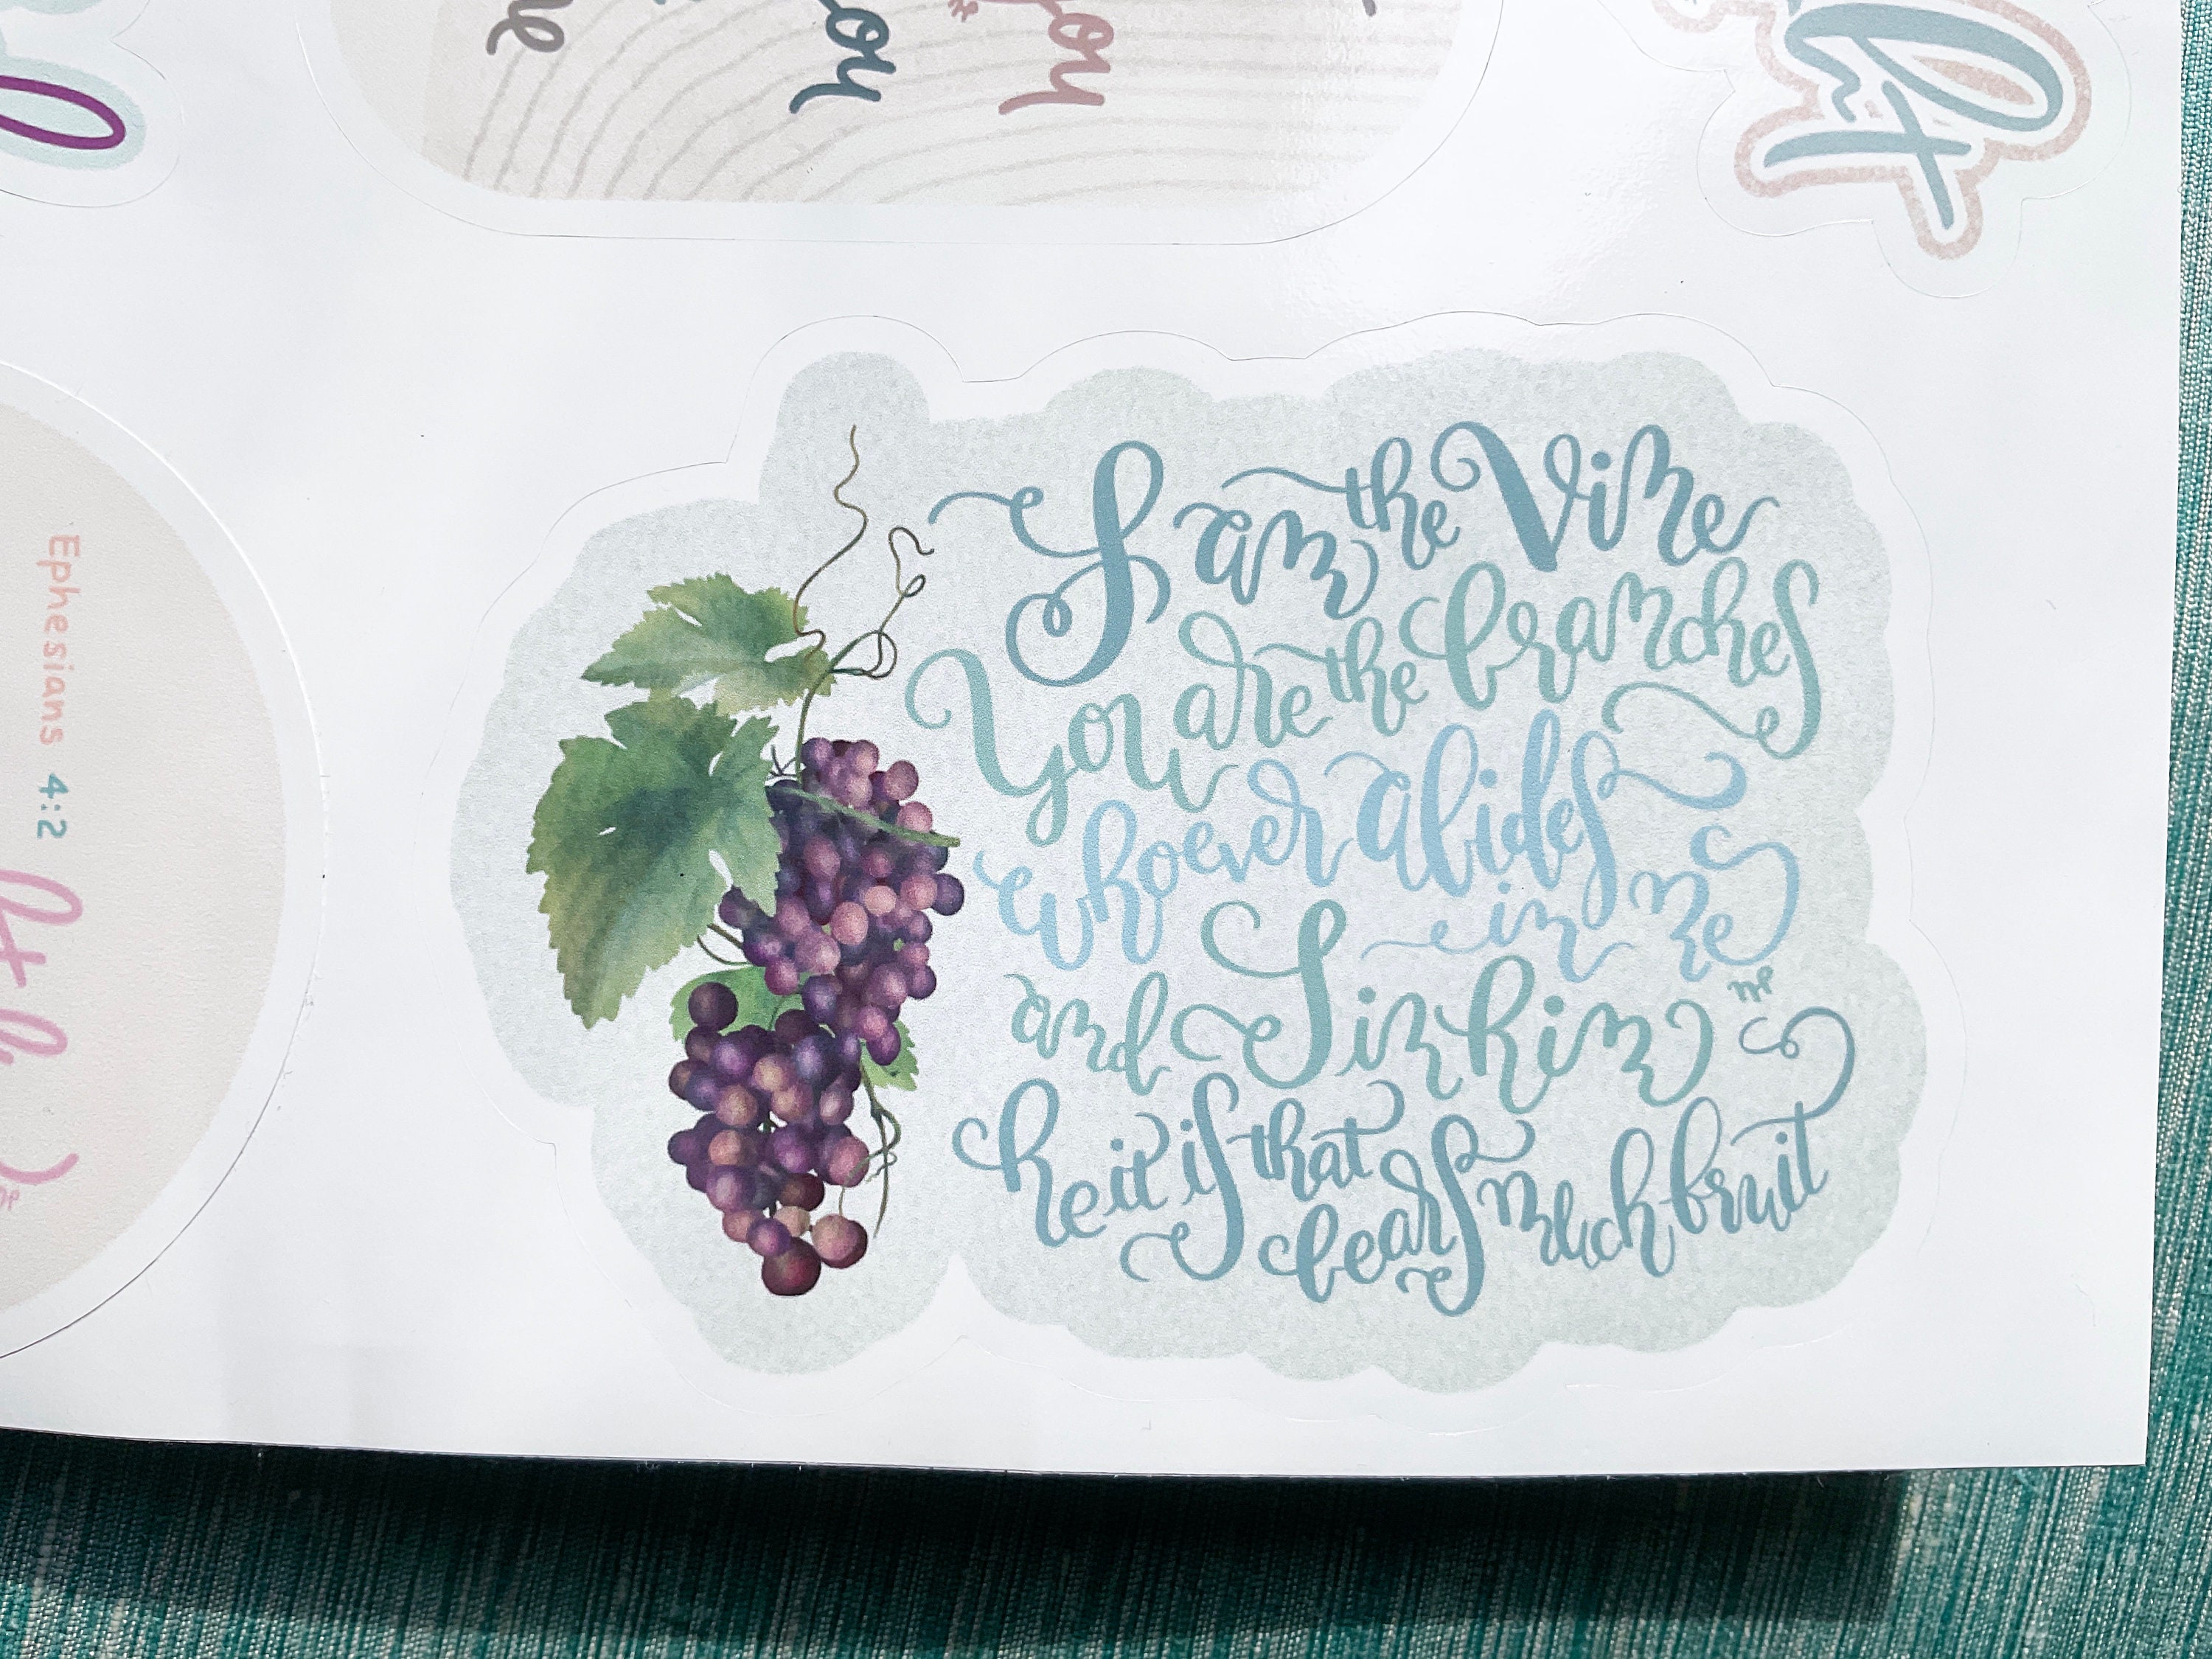 I am the Vine
You are the branches
whoever abides
in me
and I in him
he it is that
bears much fruit
Ephesians 4:2